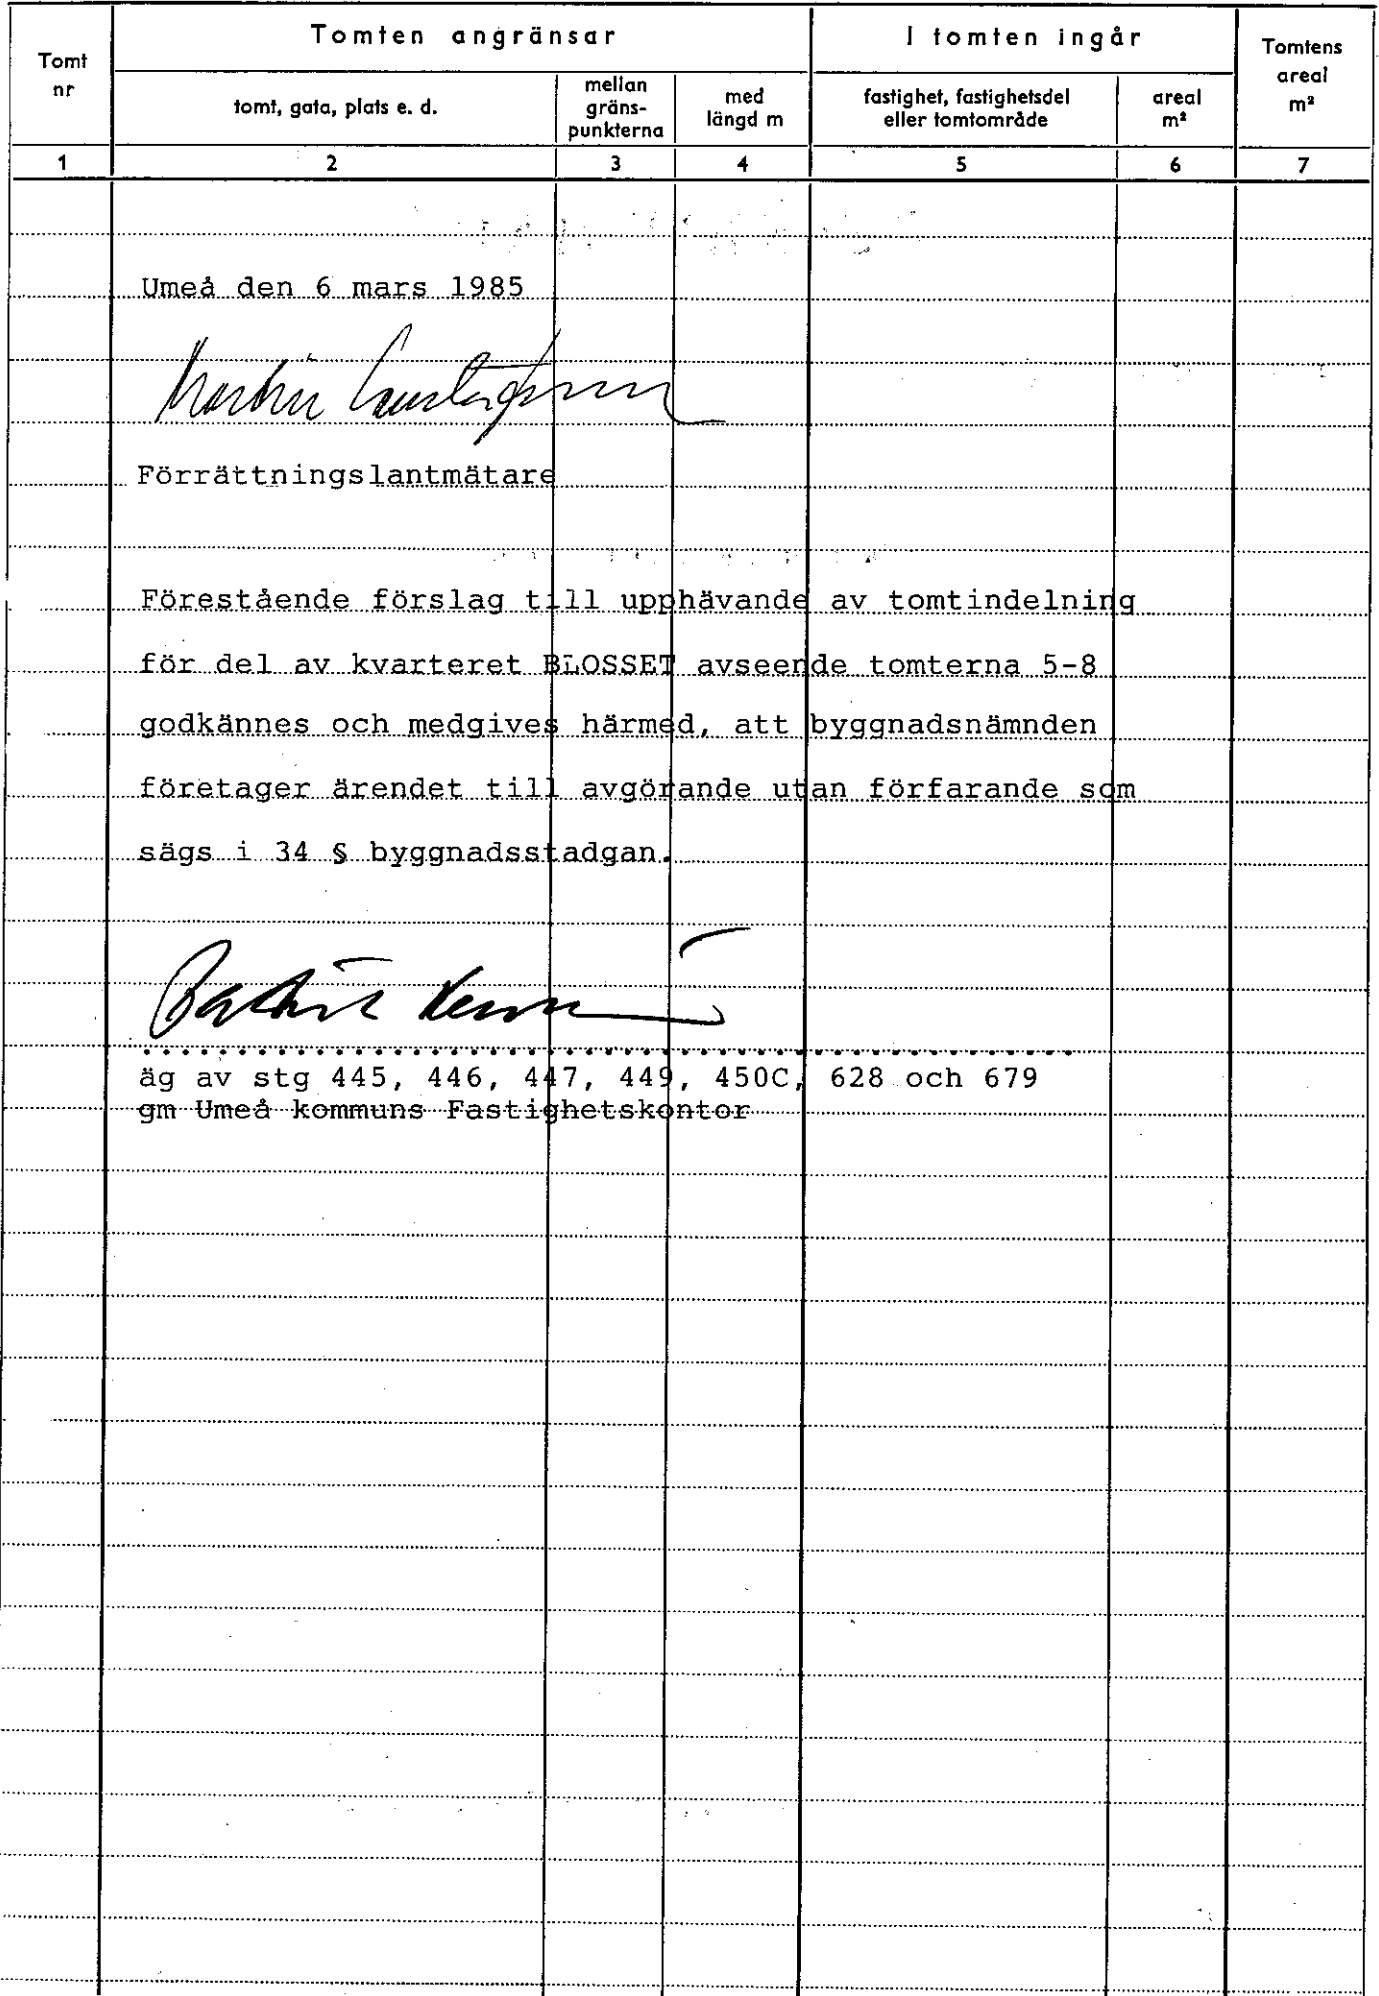 Tomt
nr
Tomten angränsar
I tomten ingår
Tomtens
areal
m²
tomt, gata, plats e. d.
mellan
gräns-
punkterna
med
längd m
fastighet, fastighetsdel
eller tomtområde
areal
m²
1 2 3 4 5 6 7
Umeå den 6 mars 1985
Martin
Förrättningslantmätare
Förestående förslag till upphävande av tomtindelning
för del av kvarteret BLOSSET avseende tomterna 5-8
godkännes och medgives härmed, att byggnadsnämnden
företager ärendet till avgörande utan förfarande som
sägs i 34 § byggnadsstadgan.
äg av stg 445, 446, 447, 449, 450C, 628 och 679
gm Umeå kommuns Fastighetskontor